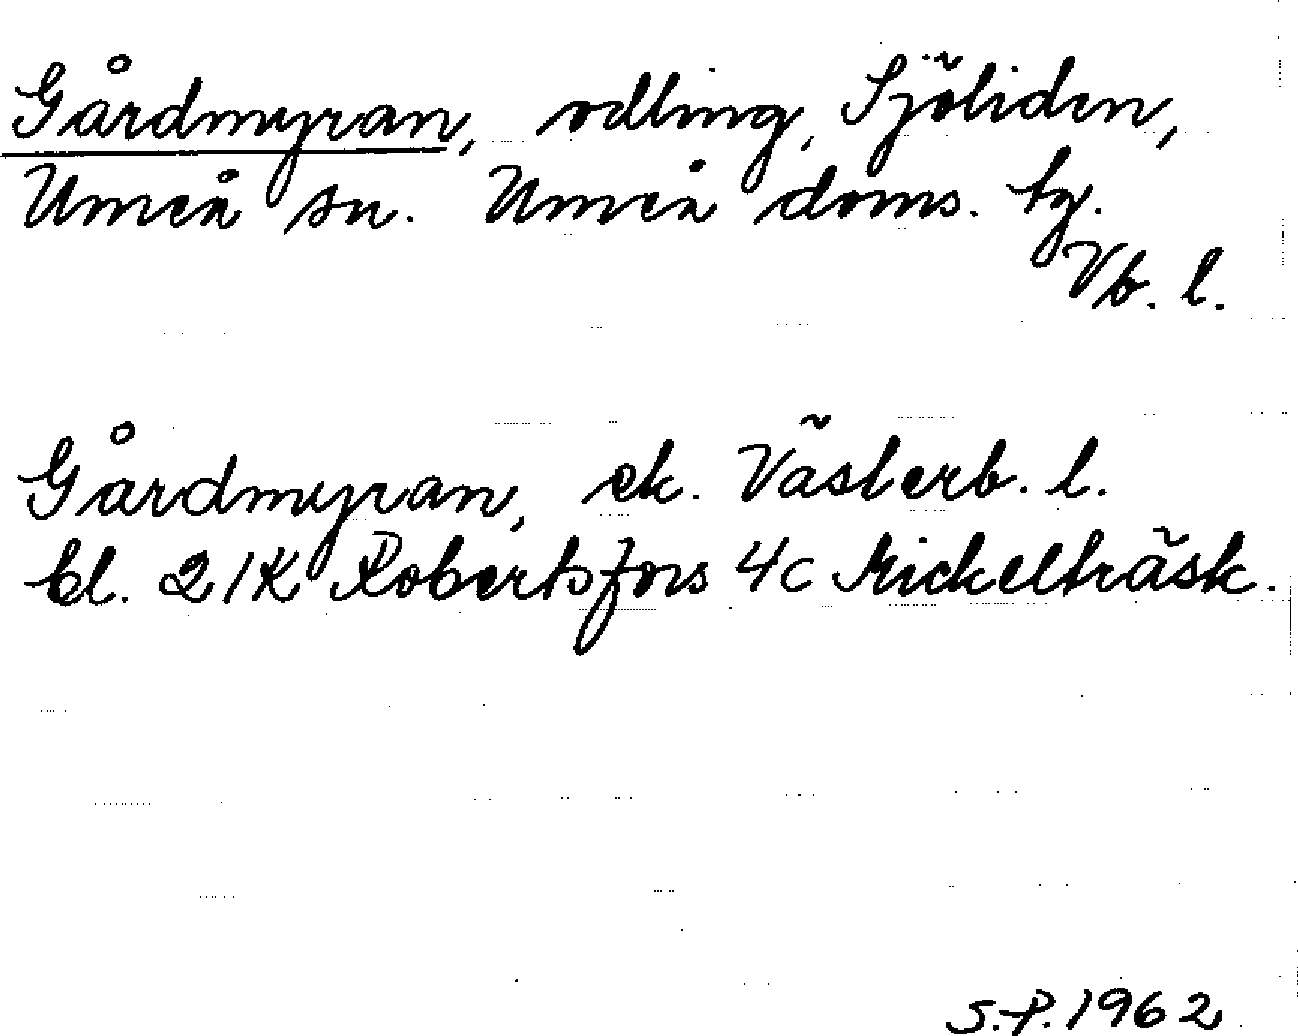 Gårdmyran, odling, Sjöliden,
Umeå sn. Umeå doms. tg.
Vb. l.
Gårdmyran, ek. Västerb. l.
bl. 21K Robertsfors 4c Mickelträsk.
S.P. 1962